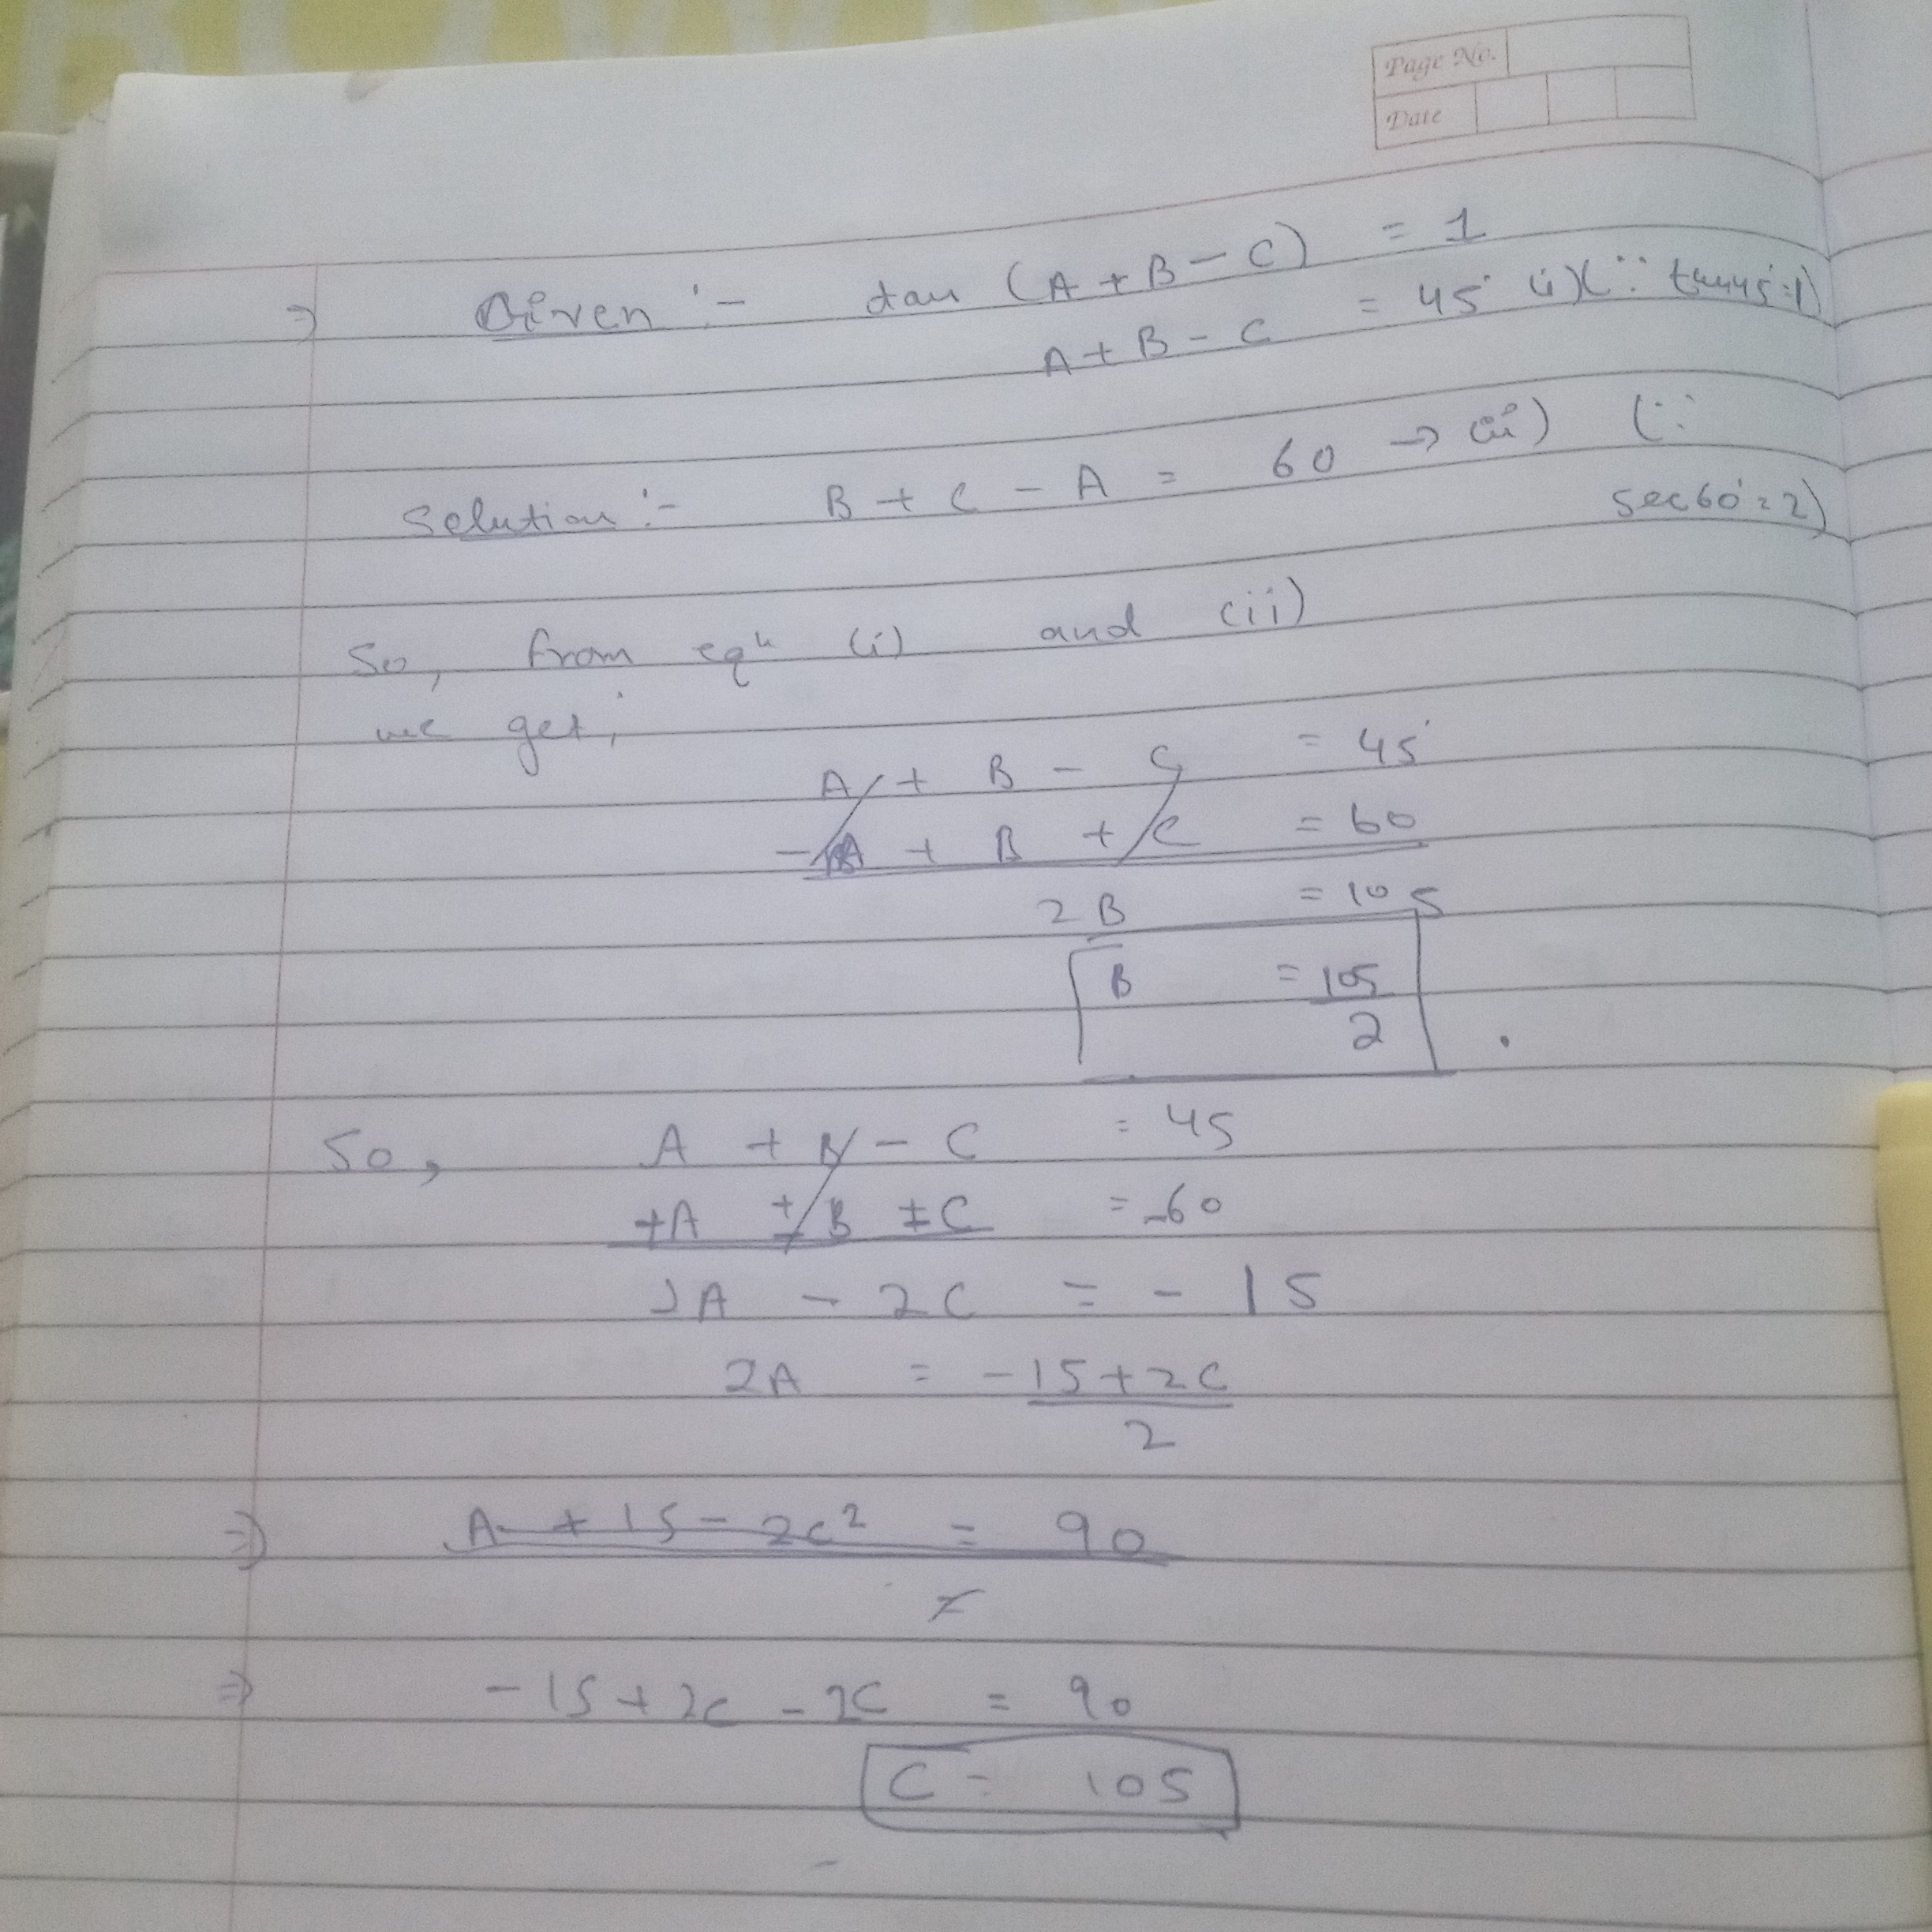 Page No.
Date
⇒ Given :- tan (A + B - C) = 1
A + B - C = 45° (i) (∵ tan45°=1)
Solution :- B + C - A = 60 → (ii) (∵
sec60°=2)
So, from eqn (i) and (ii)
we get,
A + B - C = 45°
-A + B + C = 60
2B = 105
B = 105
2
So, A + B - C = 45
+A ± B ± C = -60
2A - 2C = - 15
2A = -15+2C
2
⇒ A + 15 - 2C² = 90
⇒ -15 + 2C - 2C = 90
C = 105